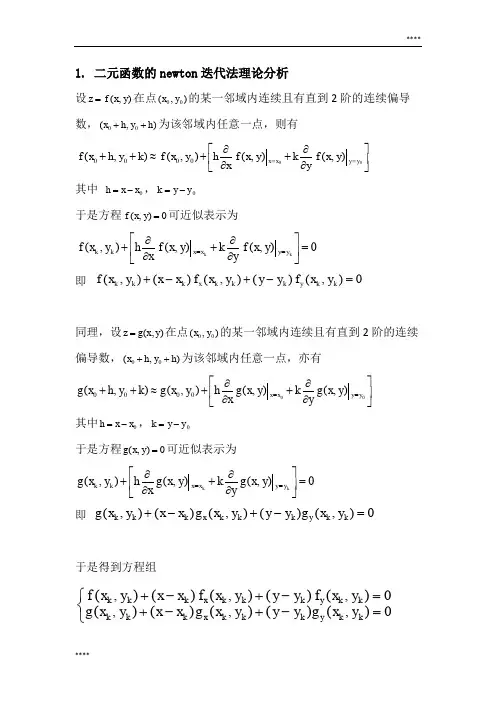 ****
1. 二元函数的newton迭代法理论分析
设z = f(x, y)在点(x₀, y₀)的某一邻域内连续且有直到2阶的连续偏导
数，(x₀ + h, y₀ + h)为该邻域内任意一点，则有
f(x₀ + h, y₀ + k) ≈ f(x₀, y₀) + [h ∂/∂x f(x, y)|ₓ₌ₓ₀ + k ∂/∂y f(x, y)|y=y₀]
其中 h = x − x₀，k = y − y₀
于是方程 f(x, y) = 0可近似表示为
f(xₖ, yₖ) + [h ∂/∂x f(x, y)|x=xₖ + k ∂/∂y f(x, y)|y=yₖ] = 0
即 f(xₖ, yₖ) + (x − xₖ) fₓ(xₖ, yₖ) + (y − yₖ) f_y(xₖ, yₖ) = 0
同理，设z = g(x, y)在点(x₀, y₀)的某一邻域内连续且有直到2阶的连续
偏导数，(x₀ + h, y₀ + h)为该邻域内任意一点，亦有
g(x₀ + h, y₀ + k) ≈ g(x₀, y₀) + [h ∂/∂x g(x, y)|x=x₀ + k ∂/∂y g(x, y)|y=y₀]
其中h = x − x₀，k = y − y₀
于是方程g(x, y) = 0可近似表示为
g(xₖ, yₖ) + [h ∂/∂x g(x, y)|x=xₖ + k ∂/∂y g(x, y)|y=yₖ] = 0
即 g(xₖ, yₖ) + (x − xₖ)gₓ(xₖ, yₖ) + (y − yₖ)g_y(xₖ, yₖ) = 0
于是得到方程组
{ f(xₖ, yₖ) + (x − xₖ) fₓ(xₖ, yₖ) + (y − yₖ) f_y(xₖ, yₖ) = 0
g(xₖ, yₖ) + (x − xₖ)gₓ(xₖ, yₖ) + (y − yₖ)g_y(xₖ, yₖ) = 0
****